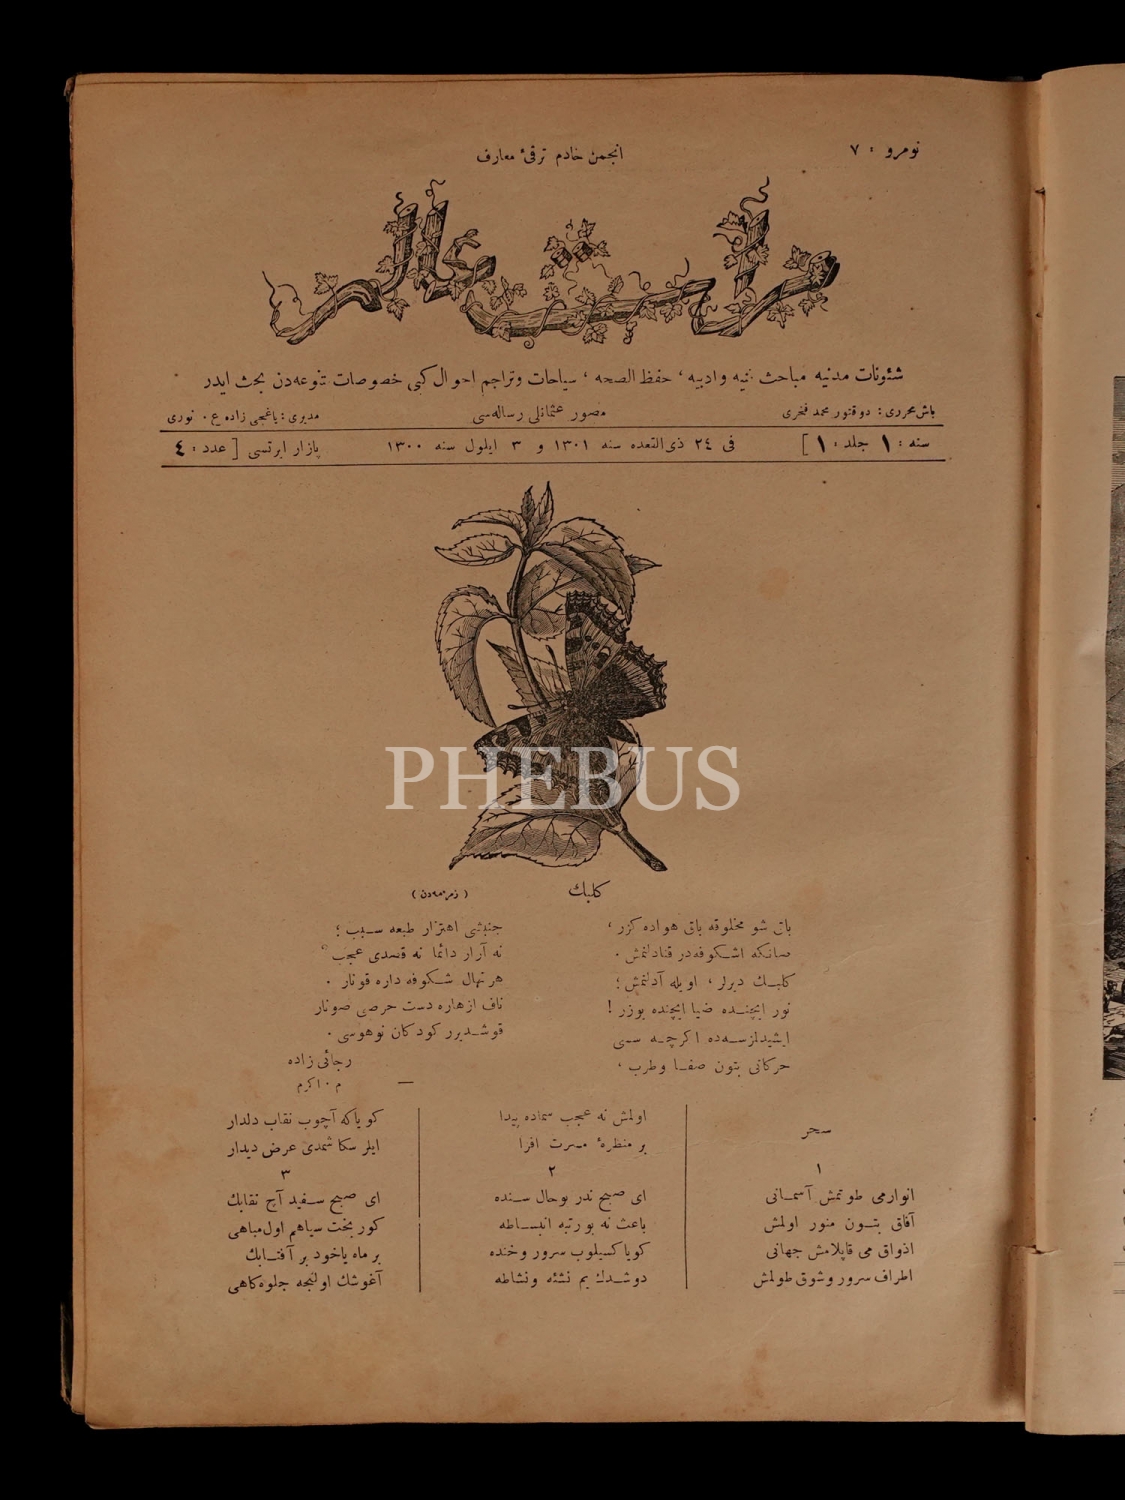 نومرو : ٧
انجمن خادم ترقیٔ معارف
مرات عالم
شئونات مدنیه مباحث فنیه و ادبیه ، حفظ الصحه ، سیاحات وتراجم احوال کبی خصوصات متنوعه‌دن بحث ایدر
باش محرری : دوقتور محمد فخری
مصور عثمانلی رساله‌سی
مدیری : یاغجی زاده ع . نوری
سنه : ١ جلد : ١ ]
فی ٢٤ ذی القعده سنه ١٣٠١ و ٣ ایلول سنه ١٣٠٠
پازار ایرتسی [ عدد : ٤
PHEBUS
کلبك
( زمزمه‌دن )
باق شو مخلوقه باق هواده کزر ،
صانکه اشکوفه‌در قنادلنمش .
کلبـك دیرلر ، اویله آدلنمش ؛
نور ایچنـده ضیا ایچنده یوزر !
ایشیدلزسـه‌ده اکرچـه سـی
حرکاتی بتون صفـا وطرب ،
جنبشی اهتزار طبعه سـبب ؛
نه آرار دائما نه قصدی عجب ؟
هر نهال شـکوفه داره قونار .
ناف ازهاره دست حرصی صونار
قوشـدیرر کودکان نوهوسی .
رجائی زاده
م . اکرم
سحر
١
انوارمی طوتمش آسمـانی
آفاق بتـون منور اولمش
اذواق می قاپلامش جهانی
اطراف سرور وشوق طولمش
اولمش نه عجب سماده پیدا
بر منظرهٔ مسرت افزا
٢
ای صبح ندر بوحال سـنده
باعث نه بو رتبه انبسـاطه
کویا کسیلوب سرور وخنده
دوشـدك یم نشئه ونشاطه
کویا که آچوب نقاب دلدار
ایلر سکا شمدی عرض دیدار
٣
ای صبح سـفید آچ نقابك
کور بخت سیاهم اول مباهی
بر ماه یاخود بر آفتـابك
آغوشك اولنجه جلوه‌کاهی